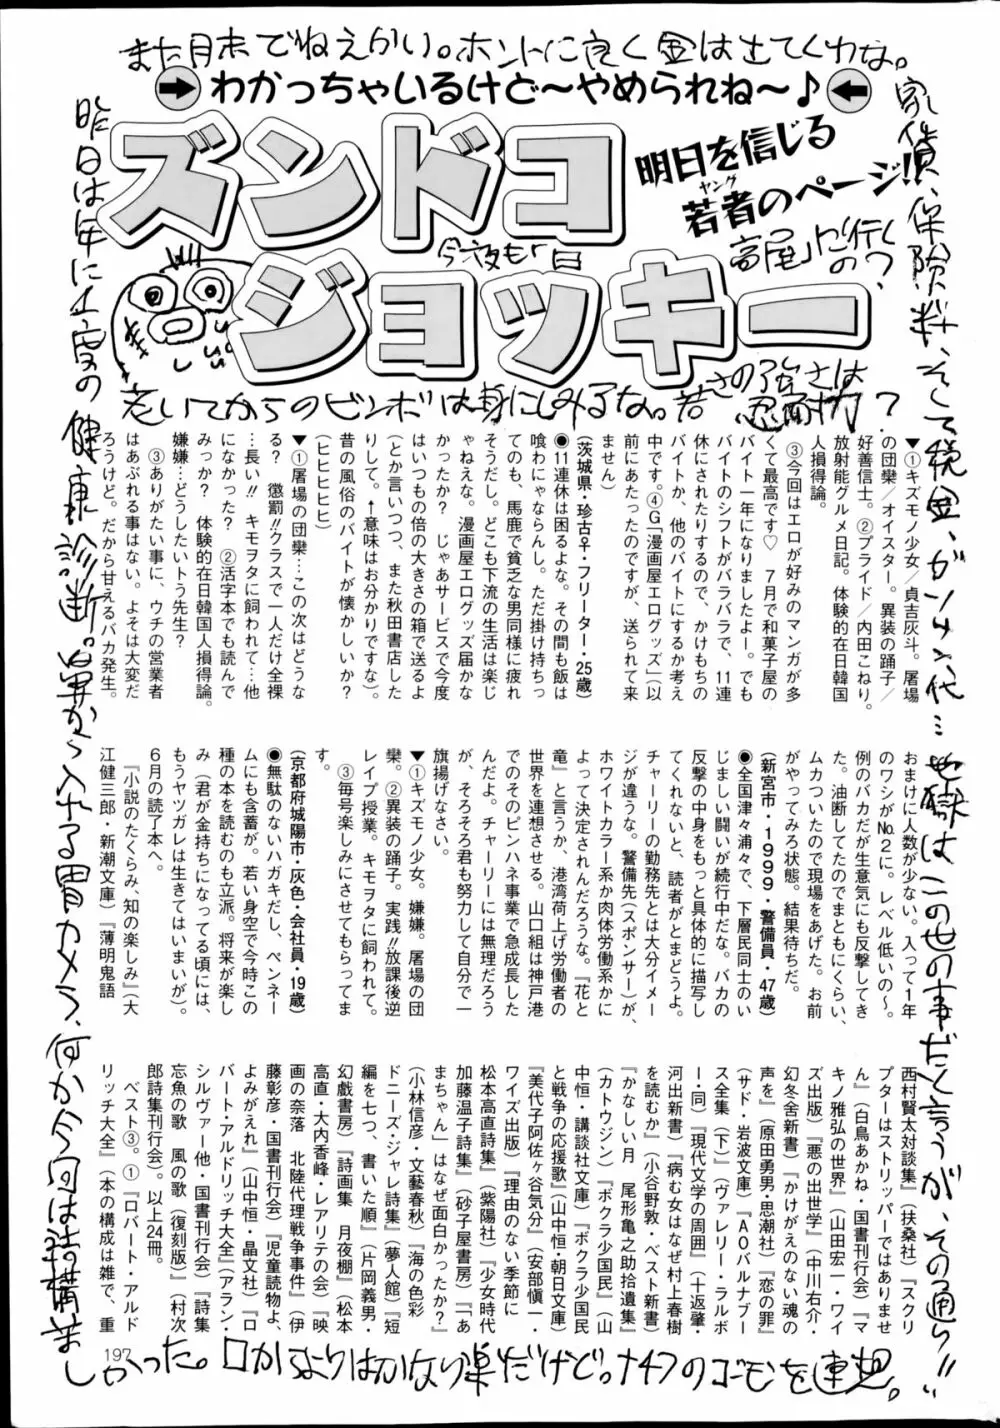 また月末でねえかい。ホントに良く金は出てくわな。
わかっちゃいるけど〜やめられね〜♪
ズンドコ
ジョッキー
明日を信じる
若者のページ!!
ヤング
今夜も1日
高尾山に行くの?
家賃、保険料、そして税金、ガソリン代…地獄はこの世の事だと言うが、その通り!!
昨日は年に1度の健康診断。鼻から入れる胃カメラ、何か今回は結構ましかった。口からよりはかなり楽だけど。ナイフのゴーモンを連想。
老いてからのビンボは身にしみるな。若さの強さは忍耐力?
▼①キズモノ少女/貞吉灰斗。屠場
の団欒/オイスター。異装の踊子/
好善信士。②プライド/内田こねり。
放射能グルメ日記。体験的在日韓国
人損得論。
③今回はエロが好みのマンガが多
くて最高です♡ 7月で和菓子屋の
バイト一年になりましたよー。でも
バイトのシフトがバラバラで、11連
休にされたりするので、かけもちの
バイトか、他のバイトにするか考え
中です。④G「漫画屋エログッズ」(以
前にあたったのですが、送られて来
ません)
(茨城県・珍古♀・フリーター・25歳)
●11連休は困るよな。その間も飯は
喰わにゃならんし。ただ掛け持ちっ
てのも、馬鹿で貧乏な男同様に疲れ
そうだし。どこも下流の生活は楽じ
ゃねえな。漫画屋エログッズ届かな
かったか? じゃあサービスで今度
はいつもの倍の大きさの箱で送るよ
(とか言いつつ、また秋田書店した
りして。↑意味はお分かりですな)。
昔の風俗のバイトが懐かしいか?
(ヒヒヒヒヒ)
▼①屠場の団欒…この次はどうな
る? 懲罰!!クラスで一人だけ全裸
…長い!! キモヲタに飼われて…他
になかった? ②活字本でも読んで
みっか? 体験的在日韓国人損得論。
嫌嫌…どうしたいトう先生?
③ありがたい事に、ウチの営業者
はあぶれる事はない。よそは大変だ
ろうけど。だから甘えるバカ発生。
おまけに人数が少ない。入って1年
のワシがNo.2に。レベル低いの〜。
例のバカだが生意気にも反撃してき
た。油断してたのでまともにくらい、
ムカついたので現場をあげた。お前
がやってみろ状態。結果待ちだ。
(新宮市・1999・警備員・47歳)
●全国津々浦々で、下層民同士のい
じましい闘いが続行中だな。バカの
反撃の中身をもっと具体的に描写し
てくれないと、読者がとまどうよ。
チャーリーの勤務先とは大分イメー
ジが違うな。警備先(スポンサー)が、
ホワイトカラー系か肉体労働系かに
よって決定されんだろうな。『花と
竜』と言うか、港湾荷上げ労働者の
世界を連想させる。山口組は神戸港
でのそのピンハネ事業で急成長した
んだよ。チャーリーには無理だろう
が、そろそろ君も努力して自分で一
旗揚げなさい。
▼①キズモノ少女。嫌嫌。屠場の団
欒。②異装の踊子。実践!!放課後逆
レイプ授業。キモヲタに飼われて。
③毎号楽しみにさせてもらってま
す。
(京都府城陽市・灰色・会社員・19歳)
●無駄のないハガキだし、ペンネー
ムにも含蓄が。若い身空で今時この
種の本を読むのも立派。将来が楽し
み(君が金持ちになってる頃には、
もうヤツガレは生きてはいまいが)。
6月の読了本へ。
『小説のたくらみ、知の楽しみ』(大
江健三郎・新潮文庫)『薄明鬼語
西村賢太対談集』(扶桑社)『スクリ
プターはストリッパーではありませ
ん』(白鳥あかね・国書刊行会)『マ
キノ雅弘の世界』(山田宏一・ワイ
ズ出版)『悪の出世学』(中川右介・
幻冬舎新書)『かけがえのない魂の
声を』(原田勇男・思潮社)『恋の罪』
(サド・岩波文庫)『AOバルナブー
ス全集(下)』(ヴァレリー・ラルボ
ー・同)『現代文学の周囲』(十返肇・
河出新書)『病む女はなぜ村上春樹
を読むか』(小谷野敦・ベスト新書)
『かなしい月 尾形亀之助拾遺集』
(カトウジン)『ボクラ少国民』(山
中恒・講談社文庫)『ボクラ少国民
と戦争の応援歌』(山中恒・朝日文庫)
『美代子阿佐ヶ谷気分』(安部慎一・
ワイズ出版)『理由のない季節に
松本高直詩集』(紫陽社)『少女時代
加藤温子詩集』(砂子屋書房)『「あ
まちゃん」はなぜ面白かったか?』
(小林信彦・文藝春秋)『海の色彩
ドニーズ・ジャレ詩集』(夢人館)『短
編を七つ、書いた順』(片岡義男・
幻戯書房)『詩画集 月夜棚』(松本
高直・大内香峰・レアリテの会)『映
画の奈落 北陸代理戦争事件』(伊
藤彰彦・国書刊行会)『児童読物よ、
よみがえれ』(山中恒・晶文社)『ロ
バート・アルドリッチ大全』(アラン・
シルヴァー他・国書刊行会)『詩集
忘魚の歌 風の歌(復刻版)』(村次
郎詩集刊行会)。以上24冊。
ベスト③。①『ロバート・アルド
リッチ大全』(本の構成は雑で、重
197